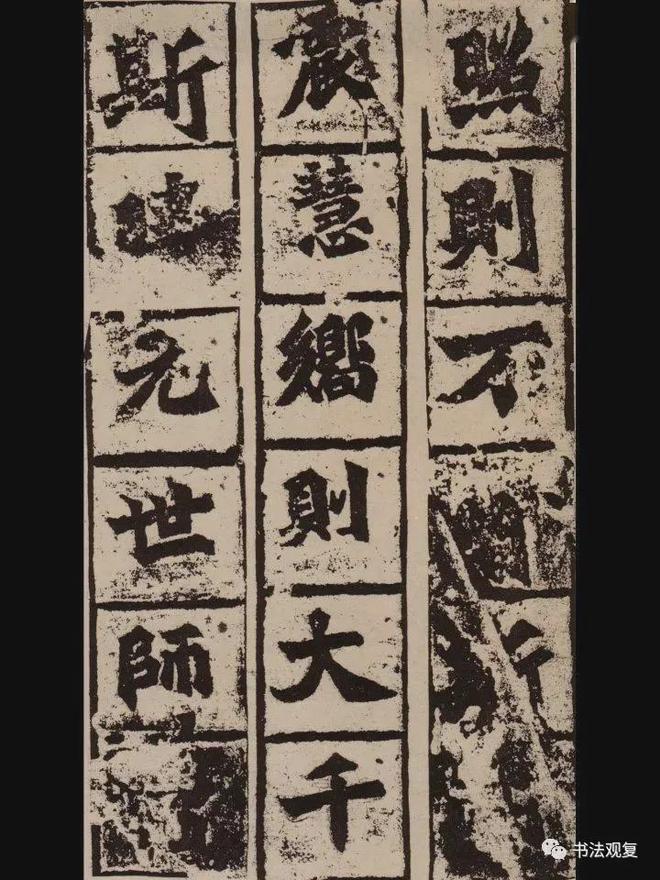 照則万
震慧嚮則大千
斯元世師
書法观复